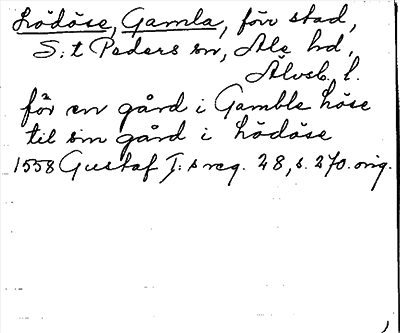 Lödöse, Gamla, förr stad,
S:t Peders sn, Ale hd,
Älvsb. l.
för en gård i Gamble löse
til sin gård i Lödöse
1558 Gustaf I:s reg. 28, s. 270. orig.